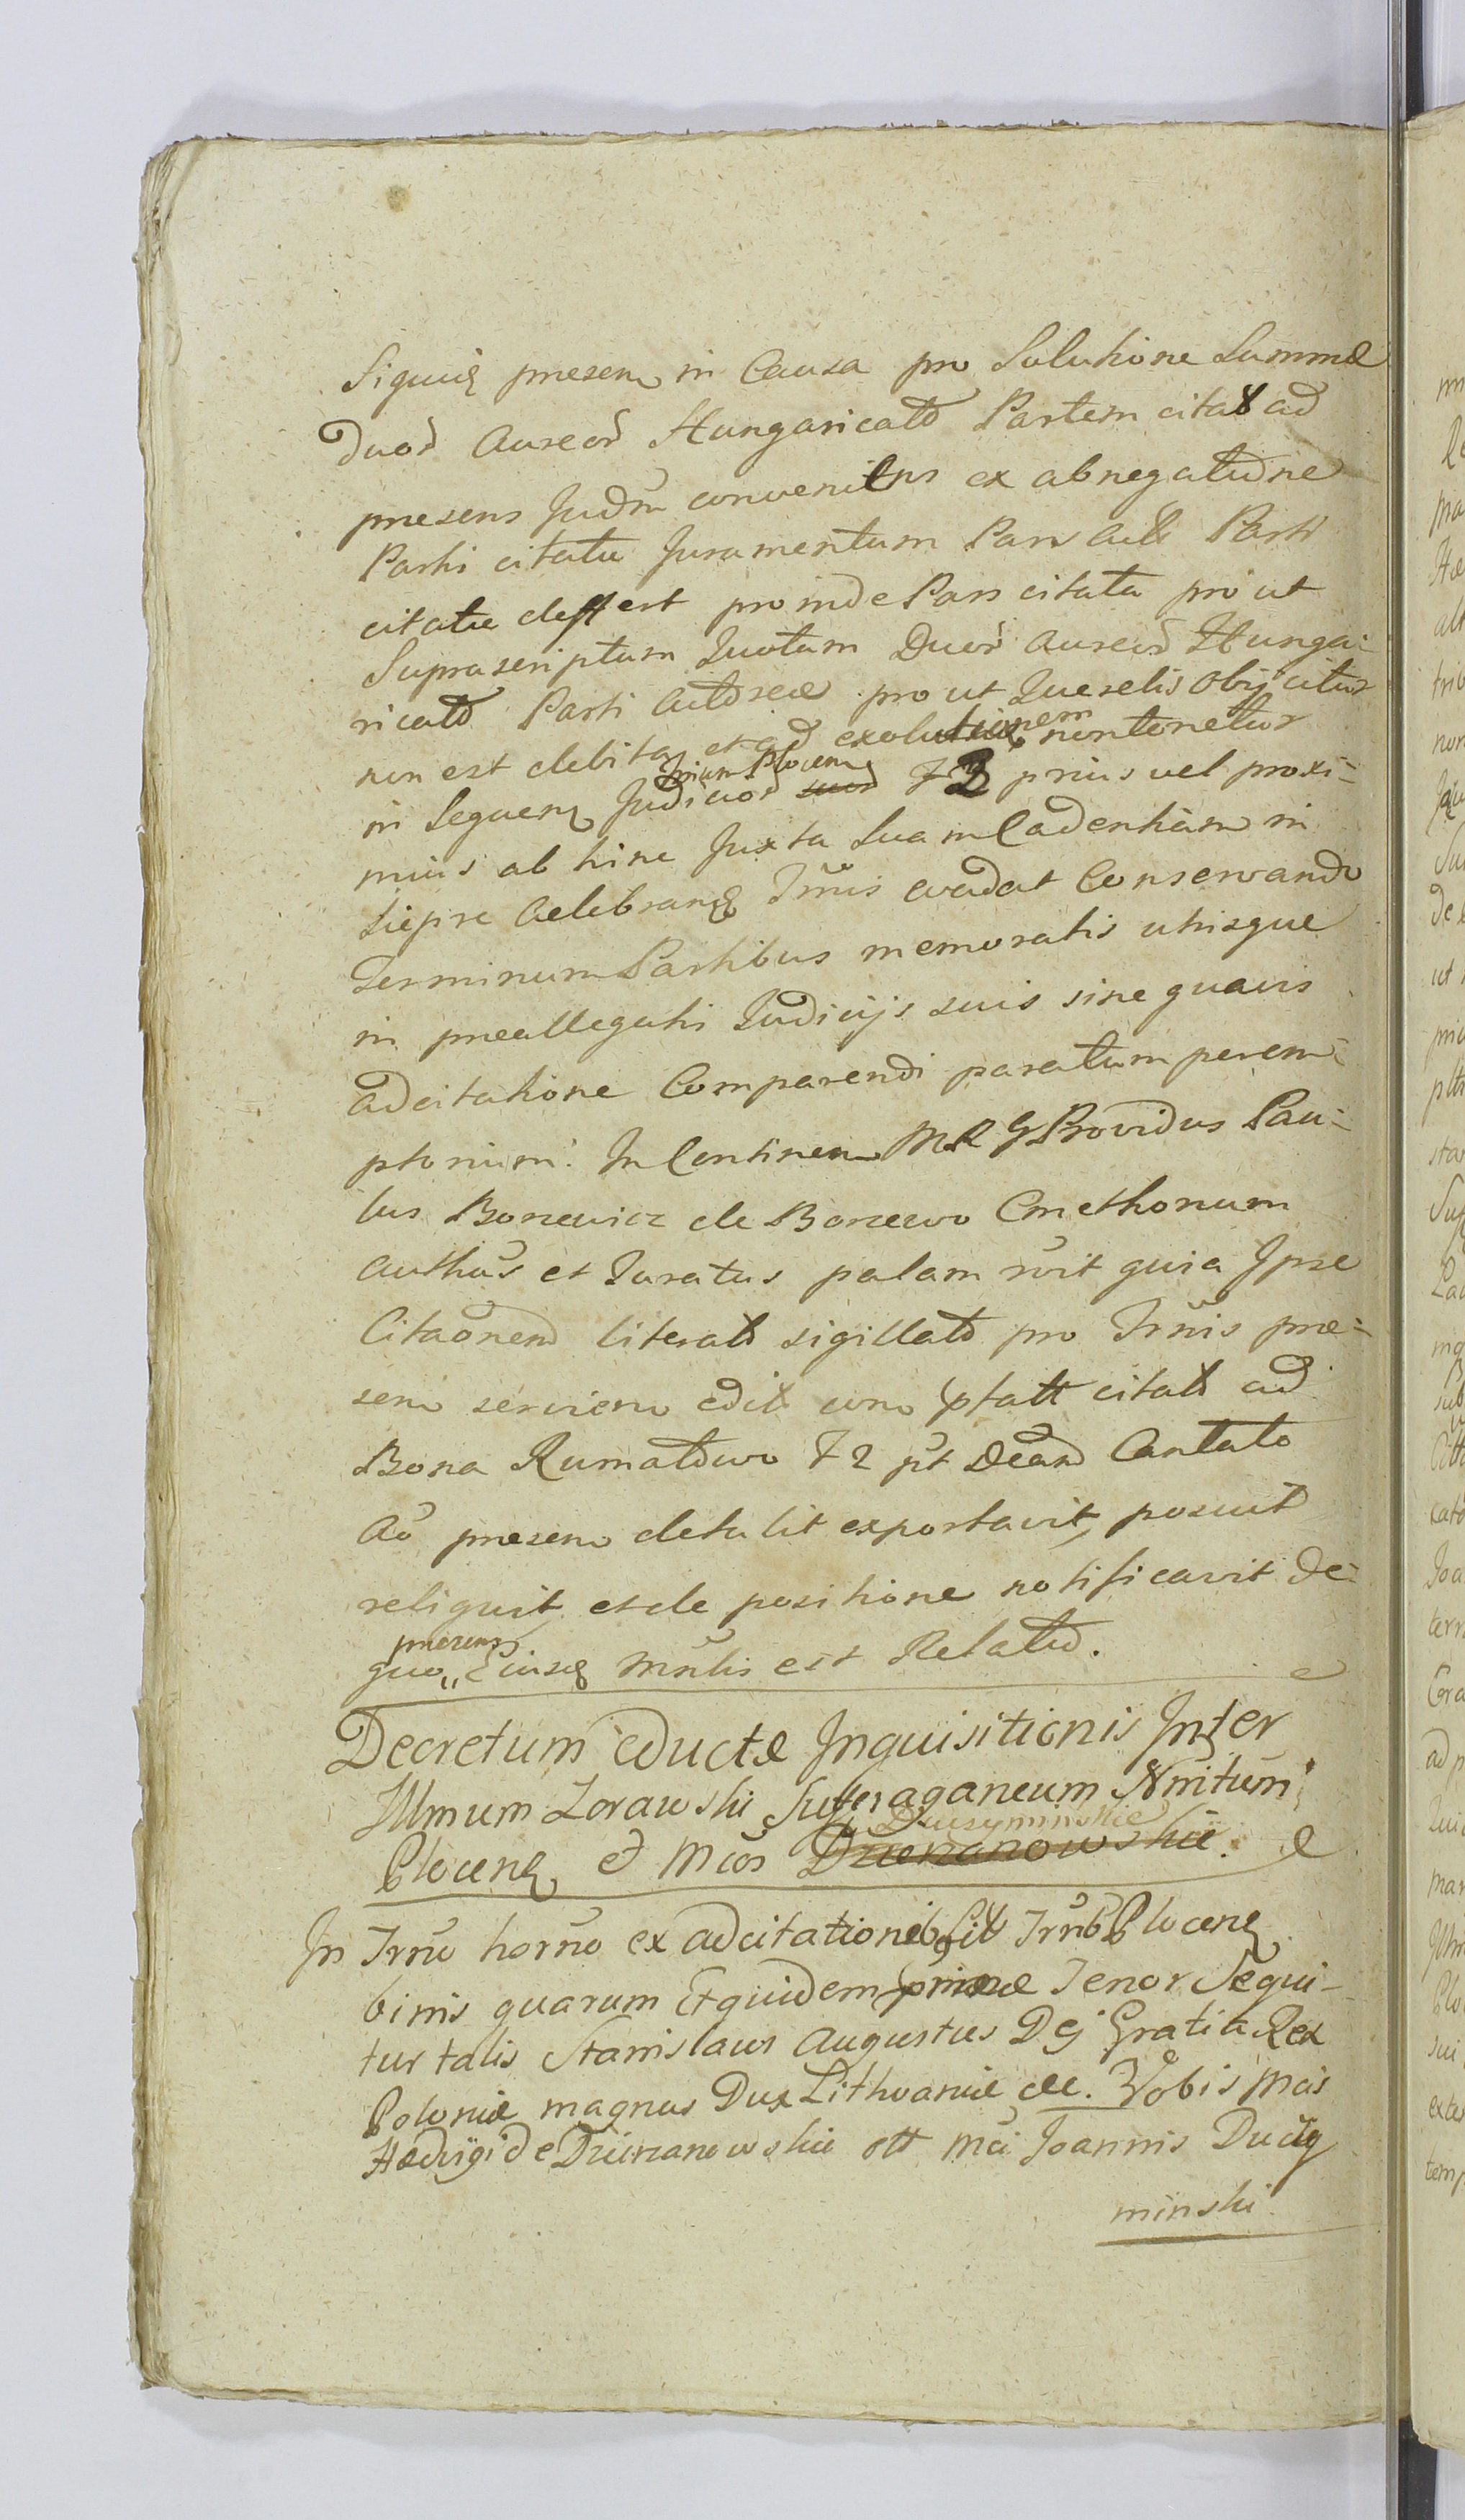 Siquidē presens in Causa pro Solutione Summæ
Duor̄ Aureor̄ Hungaricalō Partem citat ad
presens Judm̄ conveniens ex abnegatione
Parti citatæ Juramentum Pars Act Parti
citatæ deffert proinde Pars citata pro ut
Suprascriptum Quotam Duor̄ Aureor̄ Hunga-
ricalō Parti Actoreæ pro ut Querelis Objicitur
non est debita et ad exolutionem non tenetur
in Sequenꝫ Judicior̄ Trium Plocenꝫ suor̄ F 2 prius vel proxi-
mius ab hinc Juxta Suam Cadentiam in
Siepre Celebranꝫ Tr̄mis evadat Conservando
Terminum Partibus memoratis utrisque
in preallegatis Judicijs suis sine quavis
adcitatione Comparendi paratum perem-
ptorium. In Continen M R G Providus Pau-
lus Borzewicz de Borzewo Cmethonum
Authūs et Juratus palam r̄vit quia Ipse
Citaōnem literalō sigillatō pro Tr̄mis pre-
sen servien edit con ptatt citatt ad
Bona Rumatowo F 2 pt Deand Cantato
Ao presen detulit exportavit, posuit
reliquit et de positione notificavit De-
quo presens Ejusdꝫ Mn̄lis est Relatio.
Decretum Eductæ Inquisitionis Inter
Illmum Zorawski Suffraganeum Nmitum
Plocenꝫ et Mcos Dzierzanowskie Duczyminskie
In Tr̄no hor̄no ex adcitationibꝫ Lit Tr̄nb Plocenꝫ
binis quarum Et quidem primæ Tenor Sequi-
tur talis Stanislaus Augustus Dej Gratia Rex
Poloniæ magnus Dux Lithvaniæ etc. Vobis Mcis
Hedvigi de Dzierzanowskie ott Mci Joannis Duczy
minski